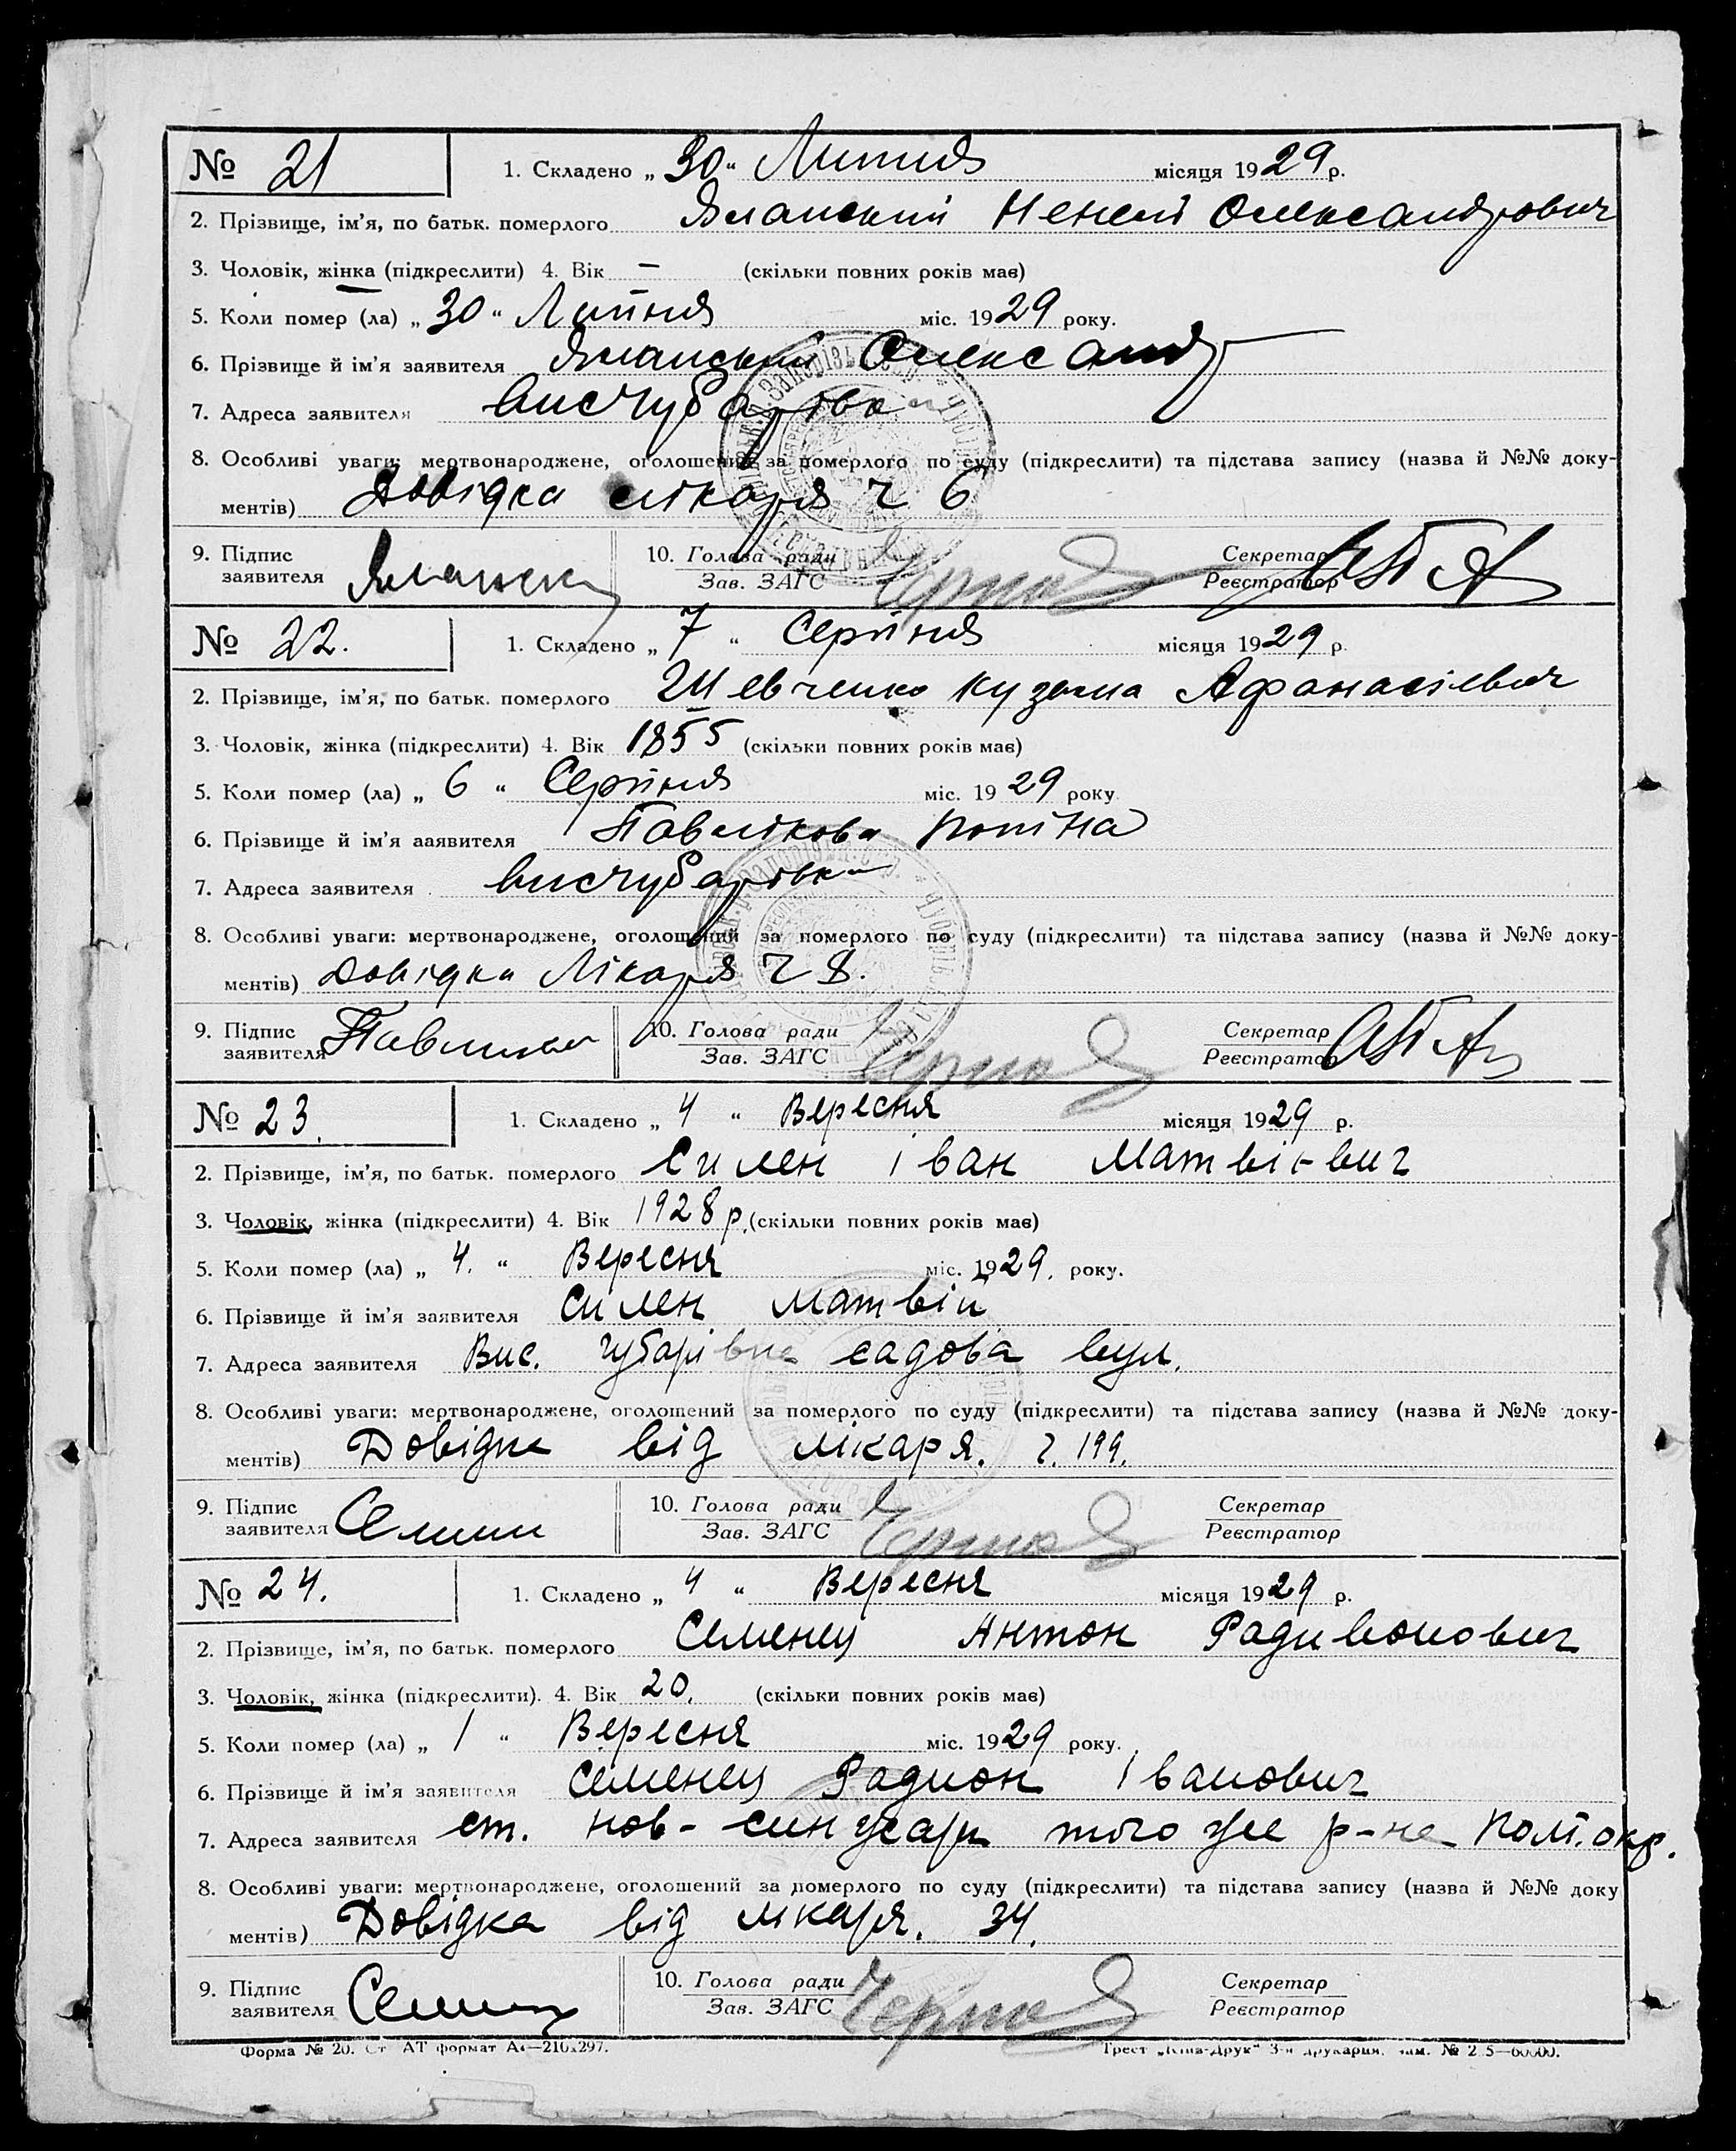 № 21 1. Складено „ 30 “ Липня місяця 1929 р.
2. Прізвище, ім’я, по батьк. померлого Яланский Ненелі Олександрович
3. Чоловік, жінка (підкреслити) 4. Вік — (скільки повних років має)
5. Коли помер (ла) „ 30 “ Липня міс. 1929 року.
6. Прізвище й ім’я заявителя Яланський Олександр
7. Адреса заявителя висчубарівка
8. Особливі уваги: мертвонароджене, оголошений за померлого по суду (підкреслити) та підстава запису (назва й №№ доку-
ментів) Довідка лікаря ч 6
9. Підпис 10. Голова ради Секретар
заявителя Зав. ЗАГС Реєстратор
№ 22. 1. Складено „ 7 “ Серпня місяця 1929 р.
2. Прізвище, ім’я, по батьк. померлого Шевченко кузьма Афанасієвич
3. Чоловік, жінка (підкреслити) 4. Вік 1855 (скільки повних років має)
5. Коли помер (ла) „ 6 “ Серпня міс. 1929 року
6. Прізвище й ім’я заявителя Павлікова
7. Адреса заявителя висчубарівка
8. Особливі уваги: мертвонароджене, оголошений за померлого по суду (підкреслити) та підстава запису (назва й №№ доку-
ментів) Довідка Лікаря ч 8.
9. Підпис 10. Голова ради Секретар
заявителя Зав. ЗАГС Реєстратор
№ 23. 1. Складено „ 4 “ Вересня місяця 1929 р.
2. Прізвище, ім’я, по батьк. померлого Силен Іван Матвієвич
3. Чоловік, жінка (підкреслити) 4. Вік 1928 р. (скільки повних років має)
5. Коли помер (ла) „ 4. “ Вересня міс. 1929. року.
6. Прізвище й ім’я заявителя Силен Матвій
7. Адреса заявителя Вис. чубарівка садова вул.
8. Особливі уваги: мертвонароджене, оголошений за померлого по суду (підкреслити) та підстава запису (назва й №№ доку-
ментів) Довідка від лікаря. ч. 199.
9. Підпис 10. Голова ради Секретар
заявителя Зав. ЗАГС Реєстратор
№ 24. 1. Складено „ 4 “ Вересня місяця 1929 р.
2. Прізвище, ім’я, по батьк. померлого Семенец Антон Радивонович
3. Чоловік, жінка (підкреслити). 4. Вік 20. (скільки повних років має)
5. Коли помер (ла) „ 1 “ Вересня міс. 1929 року.
6. Прізвище й ім’я заявителя Семенец Радион Іванович
7. Адреса заявителя ст. нов-синжари того же р-на Пол. окр.
8. Особливі уваги: мертвонароджене, оголошений за померлого по суду (підкреслити) та підстава запису (назва й №№ доку
ментів) Довідка від лікаря. 34.
9. Підпис 10. Голова ради Секретар
заявителя Зав. ЗАГС Реєстратор
Форма № 20. Ст АТ формат А4—210x297. Трест „Київ-Друк“ 3-я друкарня.